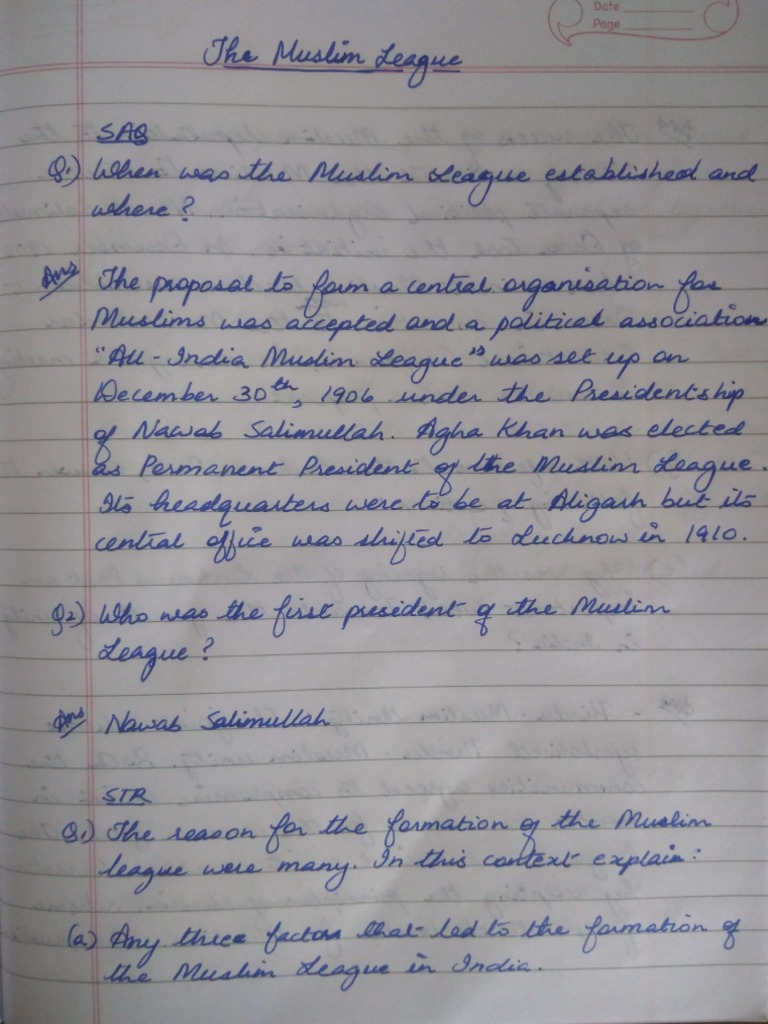 Date
Page
The Muslim League
SAQ
Q1) When was the Muslim League established and
where?
Ans The proposal to form a central organisation for
Muslims was accepted and a political association
"All-India Muslim League" was set up on
December 30th, 1906 under the Presidentship
of Nawab Salimullah. Agha Khan was elected
as Permanent President of the Muslim League.
Its headquarters were to be at Aligarh but its
central office was shifted to Lucknow in 1910.
Q2) Who was the first president of the Muslim
League?
Ans Nawab Salimullah
STR
Q1) The reason for the formation of the Muslim
league were many. In this context explain:
(a) Any three factors that led to the formation of
the Muslim League in India.